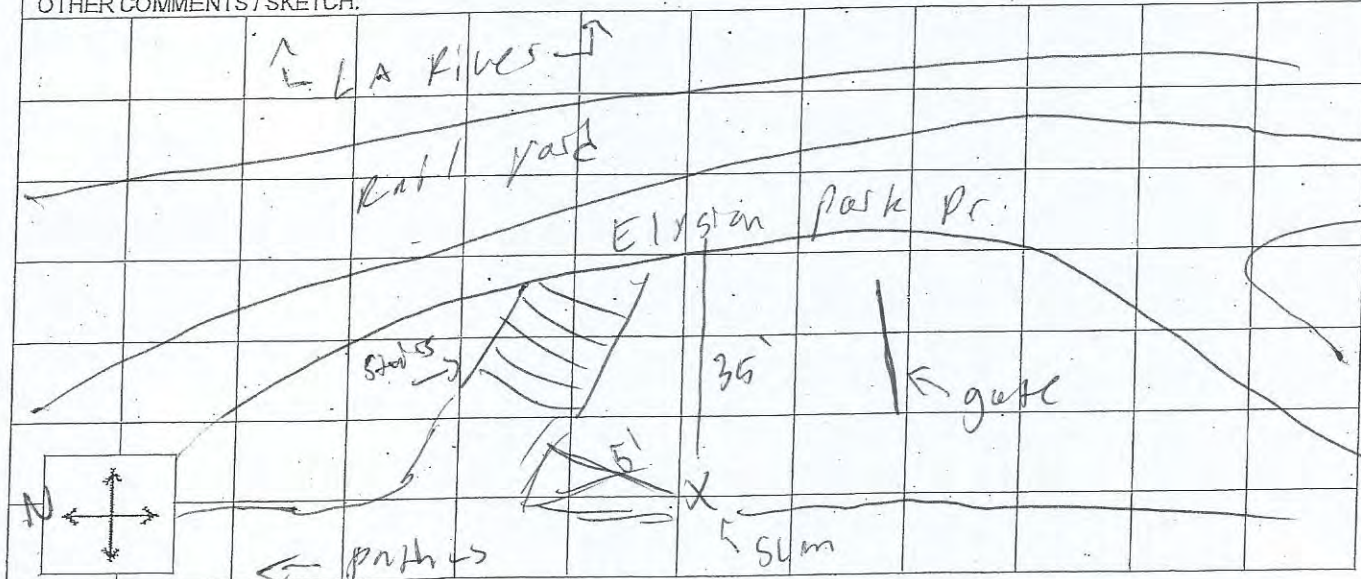 OTHER COMMENTS / SKETCH:
LA River
Rail yard
Elysian Park Dr.
stairs
35'
gate
5'
X
N